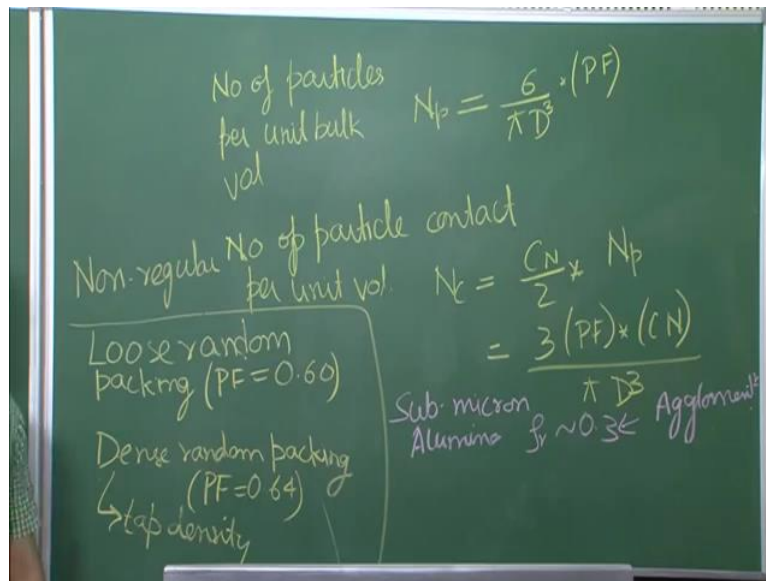 No of particles
per unit bulk
vol
Np = 6/πD³ · (PF)
Non-regular
No of particle contact
per unit vol.
Nc = CN/2 * Np
= 3(PF)*(CN)/πD³
Loose random
packing (PF=0.60)
Dense random packing
(PF=0.64)
↳ tap density
Sub-micron
Alumina ρr ~0.3 ←